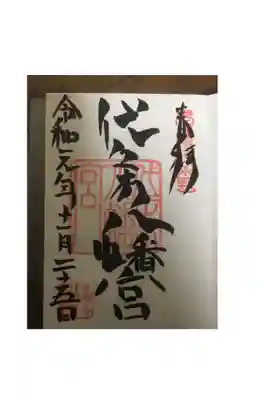 奉拝
代々木八幡宮
令和元年十一月二十五日